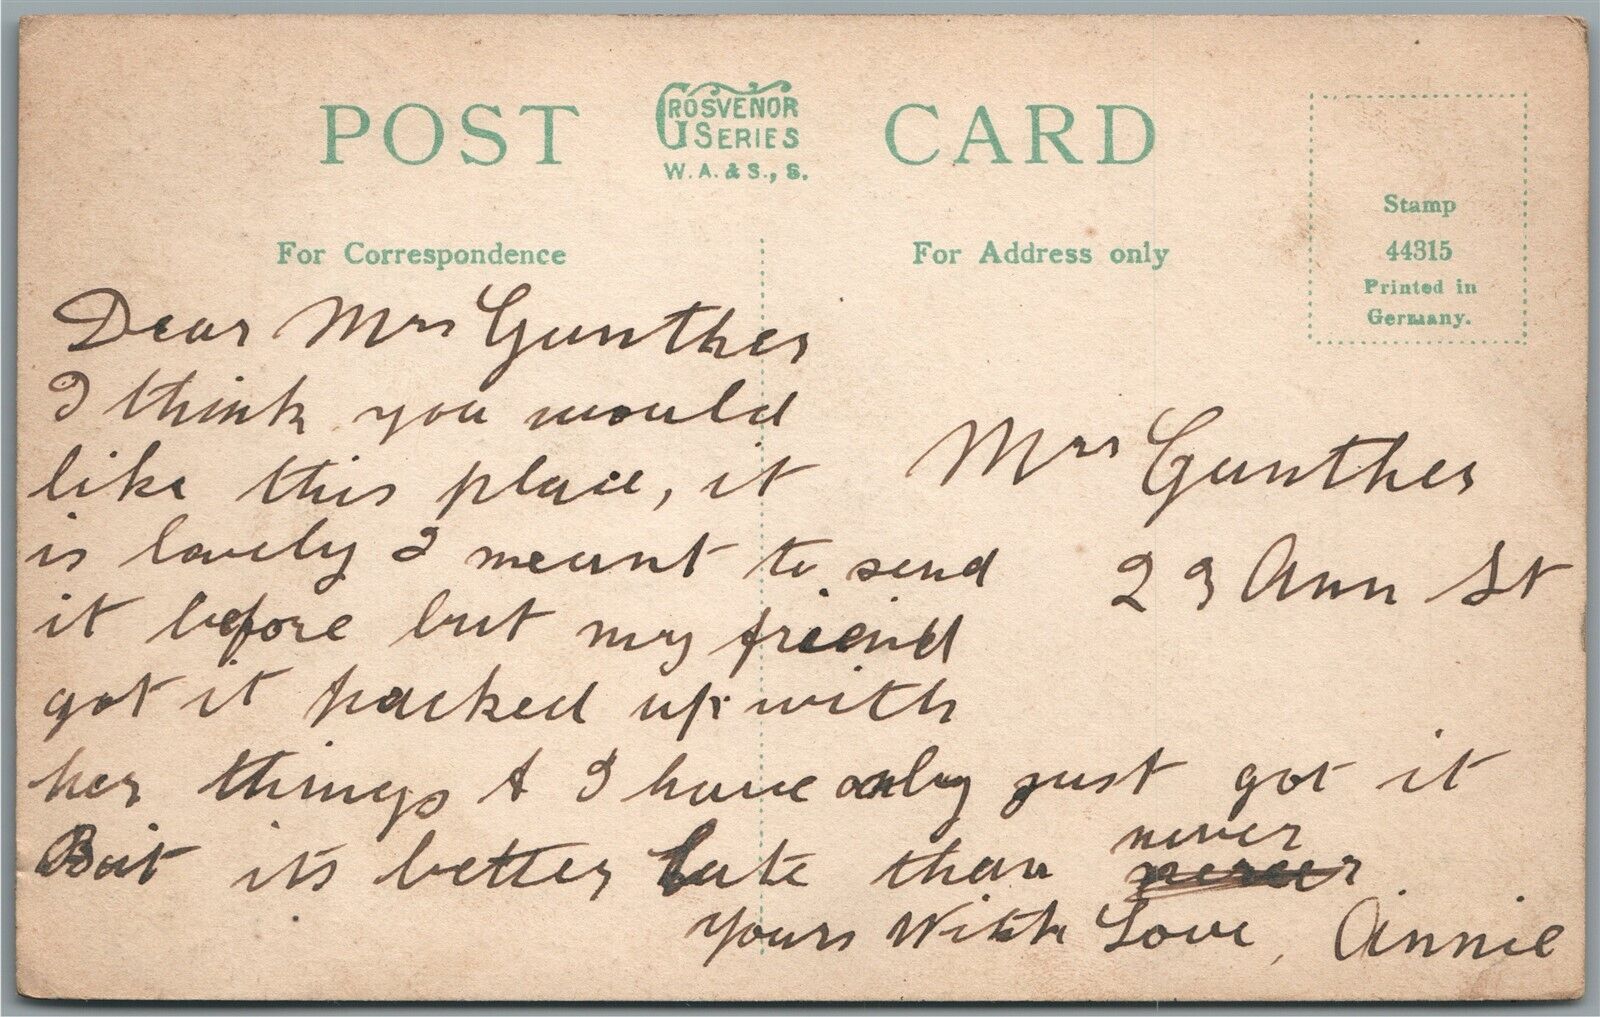 POST
GROSVENOR
SERIES
W. A. & S., S.
CARD
Stamp
44315
Printed in
Germany.
For Correspondence
For Address only
Dear Mrs Gunther
I think you would
like this place, it
is lovely I meant to send
it before but my friend
got it packed up with
her things & I have only just got it
But its better late than never
yours With Love, Annie
Mrs Gunther
23 Ann St